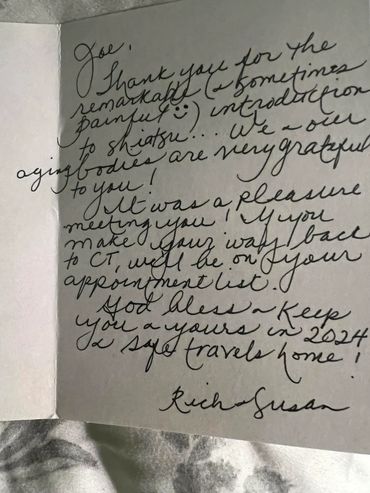 Joe,
Thank you for the
remarkable (& sometimes
painful ☺) introduction
to shiatsu... We & our
aging bodies are very grateful
to you!
It was a pleasure
meeting you! If you
make your way back
to CT, we'll be on your
appointment list.
God bless & keep
you & yours in 2024
& safe travels home!
Rich & Susan